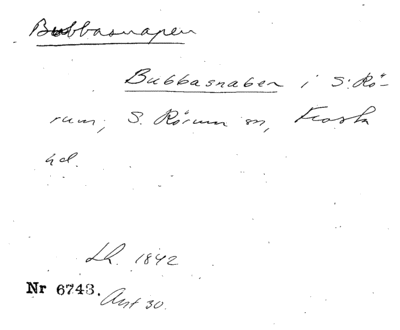 Bubbasnapen
Bubbasnaben i S. Rö-
rum, S. Rörum sn, Frosta
hd.
Lh. 1842
Nr 6743. Akt 30.